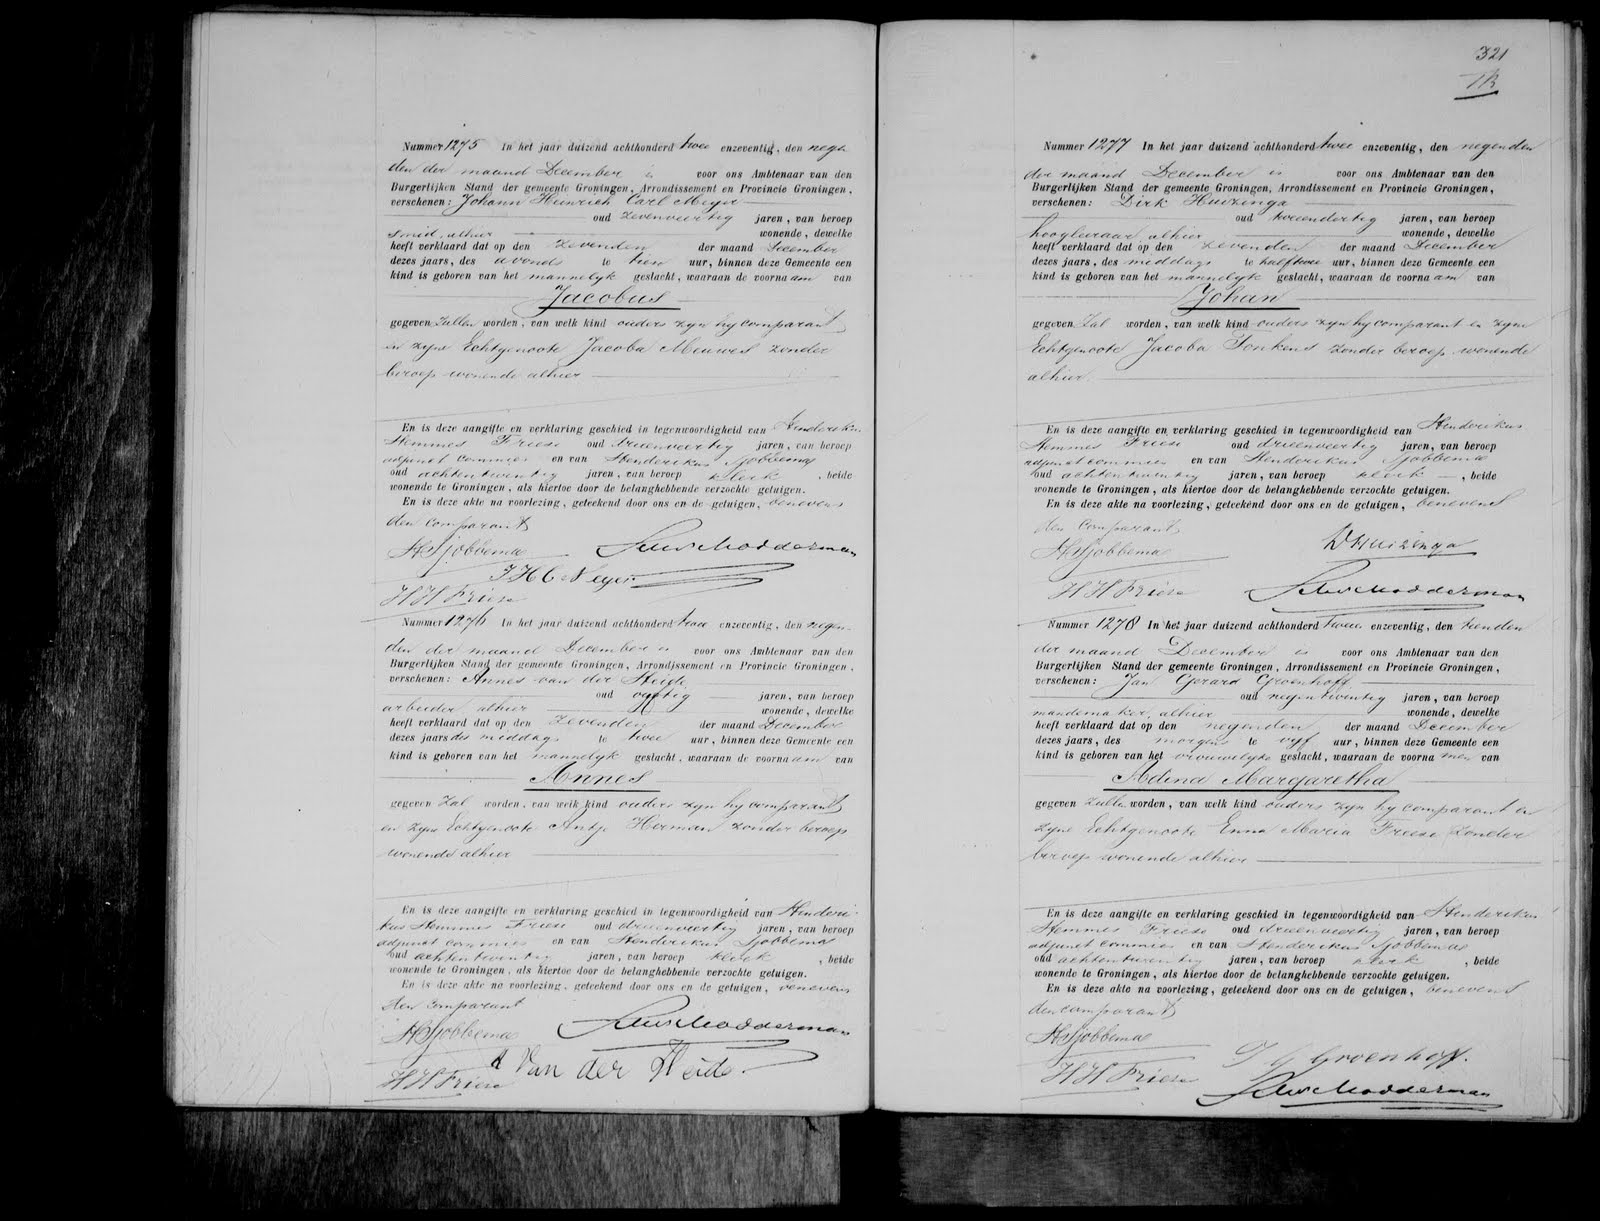 Nummer 1275 In het jaar duizend achthonderd twee enzeventig, den nege
den der maand December is voor ons Ambtenaar van den
Burgerlijken Stand der gemeente Groningen, Arrondissement en Provincie Groningen,
verschenen: Johann Heinrich Carl Meyer
oud zevenveertig jaren, van beroep
smid, alhier wonende, dewelke
heeft verklaard dat op den zevenden der maand December
dezes jaars, des avonds te tien uur, binnen deze Gemeente een
kind is geboren van het mannelyk geslacht, waaraan de voornaam van
Jacobus
gegeven zullen worden, van welk kind ouders zyn hy comparant
en zyne Echtgenoote Jacoba Meuwes zonder
beroep wonende alhier
En is deze aangifte en verklaring geschied in tegenwoordigheid van Henderikus
Hemmes Friese oud drieenveertig jaren, van beroep
adjunct commies en van Henderikus Sjobbema
oud achtentwintig jaren, van beroep klerk, beide
wonende te Groningen, als hiertoe door de belanghebbende verzochte getuigen.
En is deze akte na voorlezing, geteekend door ons en de getuigen, benevens
den comparant
HSjobbema Modderman
J H C Meyer
H H Friese
Nummer 1276 In het jaar duizend achthonderd twee enzeventig, den negen
den der maand December is voor ons Ambtenaar van den
Burgerlijken Stand der gemeente Groningen, Arrondissement en Provincie Groningen,
verschenen: Annes van der Heide
oud vyftig jaren, van beroep
arbeider, alhier wonende, dewelke
heeft verklaard dat op den zevenden der maand December
dezes jaars des middags te twee uur, binnen deze Gemeente een
kind is geboren van het mannelyk geslacht, waaraan de voornaam van
Annes
gegeven zal worden, van welk kind ouders zyn hy comparant
en zyne Echtgenoote Antje Herman zonder beroep
wonende alhier
En is deze aangifte en verklaring geschied in tegenwoordigheid van Henderi-
kus Hemmes Friese oud drieenveertig jaren, van beroep
adjunct commies en van Henderikus Sjobbema
oud achtentwintig jaren, van beroep klerk, beide
wonende te Groningen, als hiertoe door de belanghebbende verzochte getuigen.
En is deze akte na voorlezing, geteekend door ons en de getuigen, benevens
den comparant
HSjobbema Modderman
A Van der Heide
H H Friese
321
Nummer 1277 In het jaar duizend achthonderd twee enzeventig, den negenden
der maand December is voor ons Ambtenaar van den
Burgerlijken Stand der gemeente Groningen, Arrondissement en Provincie Groningen,
verschenen: Dirk Huizinga
oud tweeendertig jaren, van beroep
hoogleeraar alhier wonende, dewelke
heeft verklaard dat op den zevenden der maand December
dezes jaars, des middags te halftwee uur, binnen deze Gemeente een
kind is geboren van het mannelyk geslacht, waaraan de voornaam van
Johan
gegeven zal worden, van welk kind ouders zyn hy comparant en zyne
Echtgenoote Jacoba Tonkens zonder beroep wonende
alhier.
En is deze aangifte en verklaring geschied in tegenwoordigheid van Henderikus
Hemmes Friese oud drieenveertig jaren, van beroep
adjunct commies en van Henderikus Sjobbema
oud achtentwintig jaren, van beroep klerk, beide
wonende te Groningen, als hiertoe door de belanghebbende verzochte getuigen.
En is deze akte na voorlezing, geteekend door ons en de getuigen, benevens
den comparant
HSjobbema DHuizinga
H H Friese Modderman
Nummer 1278 In het jaar duizend achthonderd twee enzeventig, den tienden
der maand December is voor ons Ambtenaar van den
Burgerlijken Stand der gemeente Groningen, Arrondissement en Provincie Groningen,
verschenen: Jan Gerard Groenhoff
oud negentwentig jaren, van beroep
mandemaker, alhier wonende, dewelke
heeft verklaard dat op den negenden der maand December
dezes jaars, des morgens te vyf uur, binnen deze Gemeente een
kind is geboren van het vrouwelyke geslacht, waaraan de voornamen van
Adina Margaretha
gegeven zullen worden, van welk kind ouders zyn hy comparant en
zyne Echtgenoote Enna Maria Freese zonder
beroep wonende alhier
En is deze aangifte en verklaring geschied in tegenwoordigheid van Henderikus
Hemmes Friese oud drieenveertig jaren, van beroep
adjunct commies en van Henderikus Sjobbema
oud achtentwintig jaren, van beroep klerk, beide
wonende te Groningen, als hiertoe door de belanghebbende verzochte getuigen.
En is deze akte na voorlezing, geteekend door ons en de getuigen, benevens
den comparant
HSjobbema
J G Groenhoff.
H H Friese
Modderman